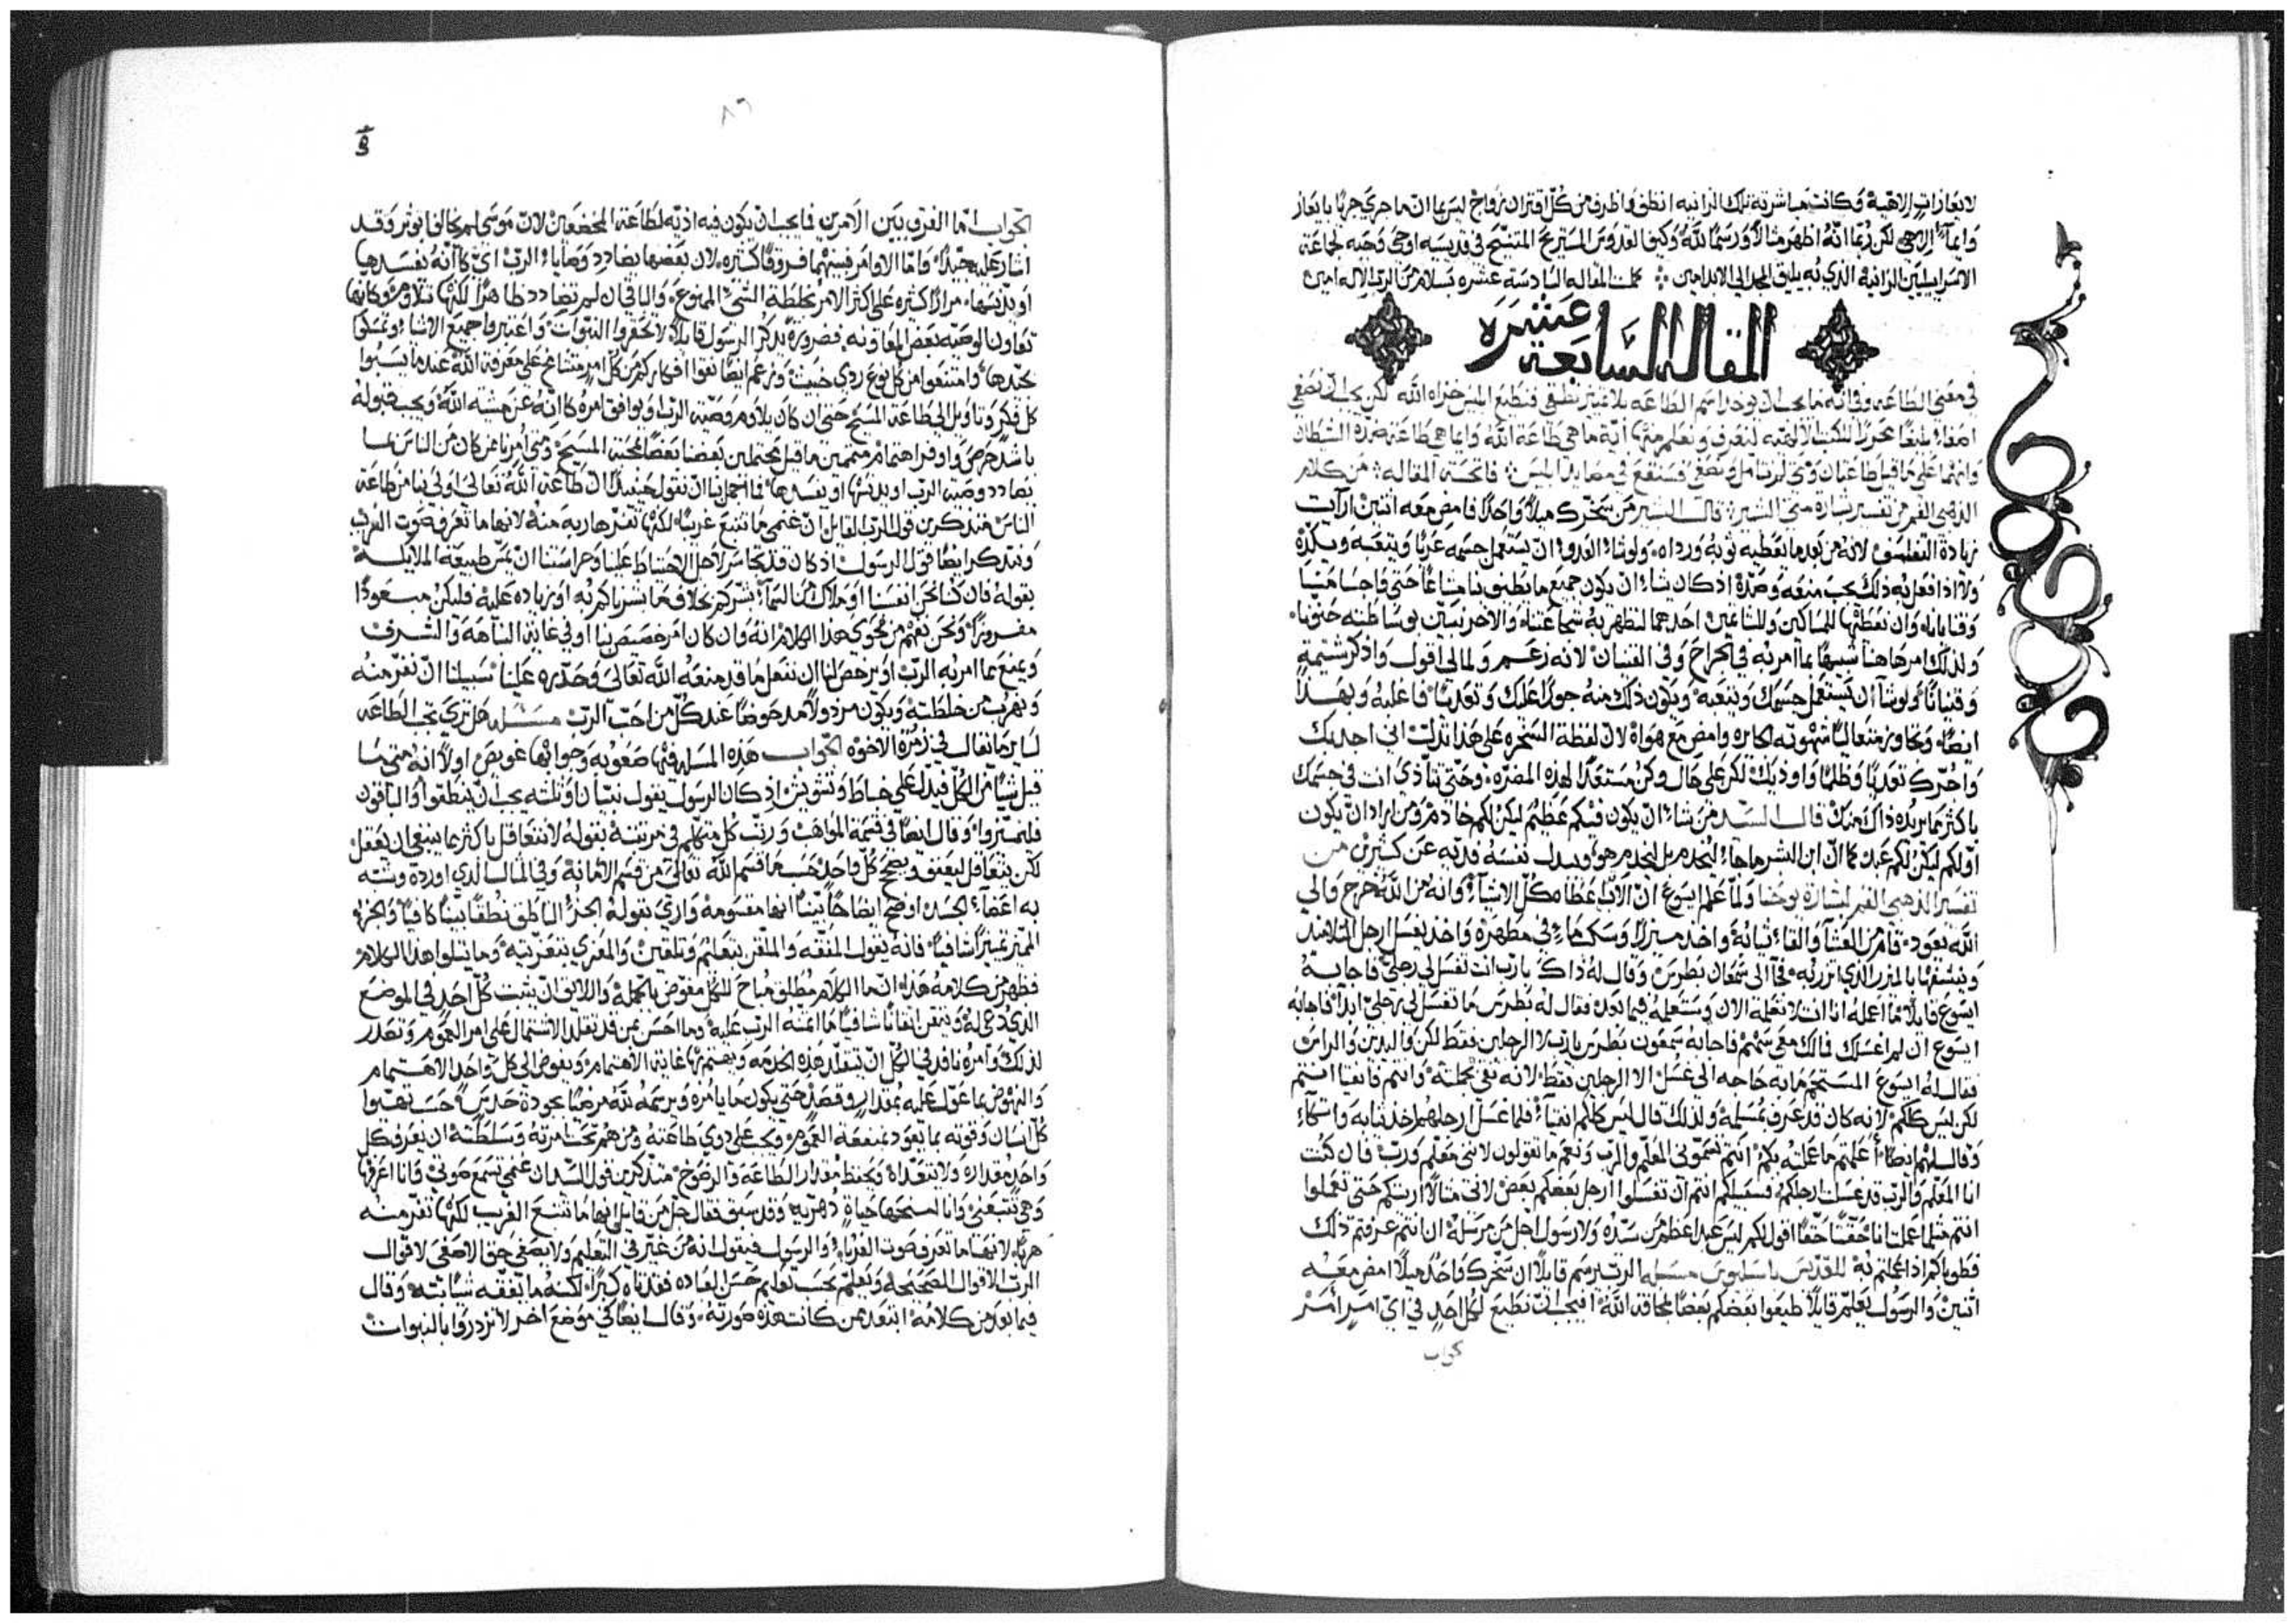 لايعازات الالاهية وكانت مباشرته تلك الزانيه انظف واظرف من كل اقتران زواج ليس بما ان ما جري جري بايعاز
وايمآء الاهي لكن ربما انه اظهر مثالاً ورسماً لله وكيف القدوس المستريح في قديسيه اوحي وجبه لجماعة
الاسراييليين الزانيه الذي به يليق المجد الي الابد امين كملت المقاله السادسة عشره بسلام من الرب الاله امين
المقاله السابعة عشره
في معني الطاعه وفي انه ما يجب ان يوخذ اسم الطاعه بلا تمييز
وانهما علي ما قيل طاعتان
الذهبي الفم من تفسير بشارة متي البشير قال البشير من سخرك ميلاً واحداً فامض معه اثنين ارايت
زيادة التفلسف لانه من بعد ما يعطيه ثوبه ورداه ولو شاء العدو ان يستعمل جسمه عريا ويتعبه ويكده
ولا اذا فعل به ذلك يجب منعه وصده اذ كان شاء ان يكون جميع ما
ولذلك امر هاهنا شبيها بما امر به في الجراح وفي القنيان لانه زعم ولما لي اقول واذكر شتيمة
وقنيانا ولو شاء ان يستعمل جسمك ويتعبه ويكون ذلك منه جورا عليك وتعديا فاغلبه وبهذا
ايضا وتجاوز متعاليا شهوته الجايره وامض مع هواه لان لفظة السخره علي هذا تدلت اني اجذبك
واجرك تعديا وظلما واوذيك لكن علي حال وكن مستعدا لهذه المضره وحتي تتاذي انت في جسمك
باكثر مما يريده ذاك منك قال السيد من شاء ان يكون فيكم عظيم ليكن لكم خادم ومن اراد ان يكون
اولكم ليكن لكم عبد كما ان ابن البشر ما جاء ليخدم بل ليخدم هو ويبدل نفسه فدية عن كثيرين من
تفسير الذهبي الفم لبشارة يوحنا ولما علم ايسوع ان الاب اعطاه كل الاشيآء وانه من الله خرج والي
الله يعود قام من العشآ والقاء ثيابه واخذ ميزرا وسكب ماء في مطهرة واخذ يغسل ارجل التلاميذ
وينشفها بالميزر الذي اتزر به فجآ الي شمعان بطرس وقال له ذاك يا رب انت تغسل لي رجلي فاجابه
ايسوع قايلا ما اعمله انا انت لا تعلمه الان وستعلمه فيما بعد فقال له بطرس ما تغسل لي رجلي ابدا فاجابه
ايسوع ان لم اغسلك فما لك معي سهم فاجابه سمعون بطرس يا رب لا الرجلين فقط لكن واليدين والراس
فقال له ايسوع المستحم ما به حاجه الي غسل الا الرجلين فقط لانه نقي بجملته وانتم فانقيا انتم
لكن ليس كلكم لانه كان قد عرف بمسلمه ولذلك قال ليس كلكم انقيآء فلما غسل ارجلهم اخذ ثيابه واتكآء
وقال لهم ايضا اعلمتم ما عملته بكم انتم تسموني المعلم والرب ونعم ما تقولون لانني معلم ورب فان كنت
انا المعلم والرب قد غسلت ارجلكم فسبيلكم انتم ان تغسلوا ارجل بعضكم بعض لاني مثالا اريتكم حتي تعملوا
انتم مثلما عملت انا حقا حقا اقول لكم ليس عبد اعظم من سيده ولا رسول اجل من مرسله ان انتم عرفتم ذلك
فطوباكم اذا عملتم به للقديس باسليوس مسله الرب يرسم قايلا ان سخرك واحد ميلا امض معه
اثنين والرسول يعلم قايلا طيعوا بعضكم بعضا بمخافة الله افيجب ان نطيع لكل احد في اي امر امر
كواب
٨٦
الجواب اما الفرق بين الامرين فما يجب ان يكون فيه اذيه لطاعة المخضعين لان موسي لم يخالف يوثر وقد
اشار عليه جيدا واما الاوامر فبينهما فروقا كثيره لان بعضها يضادد وصايا الرب اي كانه يفسدها
او يدنسها مرارا كثيره علي اكثر الامر بخلطة الشي الممنوع والباقي ان لم تضادد ظاهرا لكنها تلاوم وكانها
تعاون الوصيه بعض المعاونه فضرورة نذكر الرسول قايلا لا تحقروا النبوات واعتبروا جميع الاشياء وتمسكوا
بجيدها وامتنعوا من كل نوع ردي خبيث وزعم ايضا
كل فكر وتاول الي طاعة المسيح حتي ان كان يلاوم وصية الرب او يوافق امره كانه عن مشية الله ويجب قبوله
باشد حرص واوفر اهتمام متممين ما قيل محتملين بعضنا بعضا بمحبة المسيح ومتي امرنا من كان من الناس بما
يضادد وصية الرب او يدنسها او يفسدها فما اجمل بنا ان نقول حينيذ ان طاعة الله تعالي اولي بنا من طاعة
الناس متذكرين قول الرب القايل ان غنمي ما تتبع غريبا لكنها تفر هاربه منه لانها ما تعرف صوت الغريب
ونتذكر ايضا قول الرسول اذ كان قد تجاسر لاجل الاحتياط علينا وحراستنا ان يمس طبيعة الملايكه
بقوله فان كنا نحن انفسنا او ملاك من السمآء بشركم بخلاف ما بشرناكم به او زياده عليه فليكن مبعودا
مفروزا ونحن نفهم من نحوي هذا الكلام انه وان كان امر خصيص بنا او في غاية النباهة والشرف
ويمنع مما امر به الرب او يرخص لنا ان نفعل ما قد منعه الله تعالي وحذره علينا سبيلنا ان نفر منه
ونهرب من خلطته ويكون مرذولا مدحوضا عند كل من احب الرب مسئله هل تري تجب الطاعه
لساير ما يقال في زمرة الاخوه الجواب هذه المسله فيها صعوبه وجوابها عويص اولا انه متي ما
قيل شيا من الكل فيدل علي خباط وتشويش اذ كان الرسول يقول نبيان او ثلثه يجب ان ينطقوا والباقون
فليميزوا وقال ايضا في قسمة المواهب ورتب كل متكلم في مرتبته بقوله لا نتعاقل باكثر مما ينبغي ان نعقل
لكن نتعاقل ليعفف ويصح كل واحد حسبما قسم الله تعالي من قسم الامانة وفي المثال الذي اورده وشبه
به اعضآء الجسد اوضح ايضاحا بينا انها مقسومة وازي بقوله
المميز تمييزا شافيا فانه يقول المفقه والملقن بتعليم وتلقين والمعزي بتعزيته وما يتلوا هذا الكلام
فظهر من كلامه هذا انه ما الكلام مطلق مباح للكل مفوض بالجملة واللايق ان يثبت كل احد في الموضع
الذي دعي له ويتقن اتقانا شافيا ما اتمنه الرب عليه وما احسن بمن قد تقلد الاشتمال علي امر العموم
لذلك وامره نافد في الكل ان يتقلد هذه الخدمه ويهتم بها غاية الاهتمام ويفوض الي كل واحد الاهتمام
والنهوض بما عول عليه بمقدار وقصد حتي يكون ما يامره ويرسمه لله مرضيا بجودة حدس حسب تهيوا
كل انسان وقوته بما يعود بمنفعة العموم ويجب علي ذوي طاعته ومن هم تحت امرته وسلطته ان يعرف كل
واحد مقداره ولا يتعداه ويحفظ مقدار الطاعه والرضوخ متذكرين قول السيد ان غنمي تسمع صوتي وانا اعرفها
وهي تتبعني وانا امنحها حياة دهريه وقد سبق فقال
هربا لانها ما تعرف صوت الغربا والرسول فيقول انه من غير في التعليم ولا يصغي حق الاصغي لاقوال
الرب الاقوال الصحيحه وتعليم بحسب تعليم حسن العباده فقد تاه كبرا لكنه ما تفقه شيا بته وقال
فيما بعد من كلامه ابتعد عمن كانت هذه صورته وقال ايضا في موضع اخر لا تزدروا بالنبوات